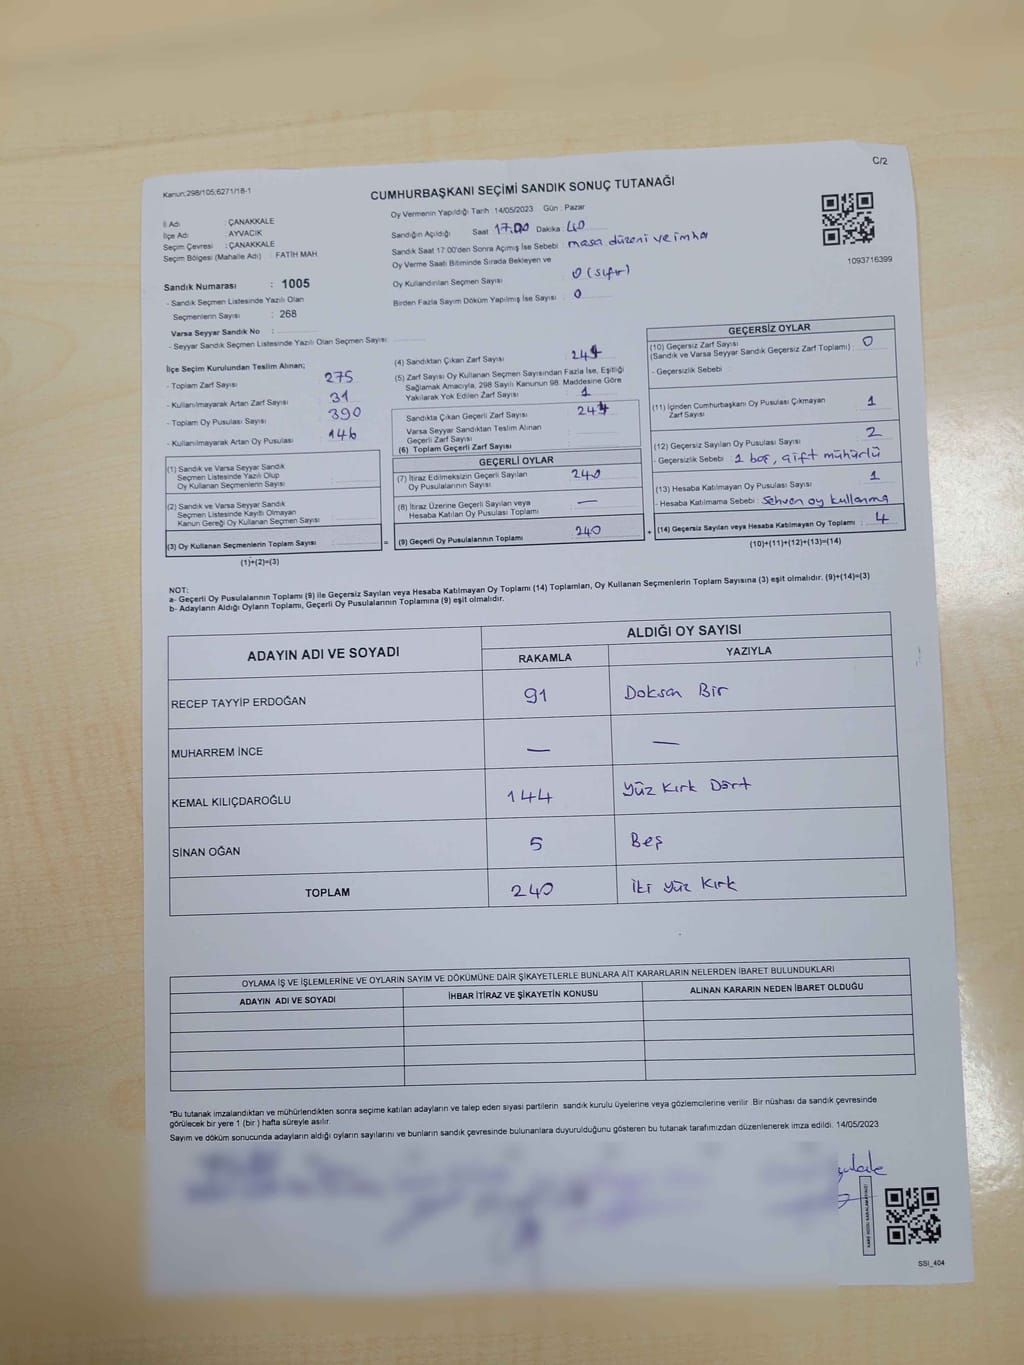 C/2
Kanun:298/105;6271/18-1
CUMHURBAŞKANI SEÇİMİ SANDIK SONUÇ TUTANAĞI
İl Adı : ÇANAKKALE
İlçe Adı : AYVACIK
Seçim Çevresi : ÇANAKKALE
Seçim Bölgesi (Mahalle Adı) : FATİH MAH.
Sandık Numarası : 1005
- Sandık Seçmen Listesinde Yazılı Olan
Seçmenlerin Sayısı : 268
Varsa Seyyar Sandık No :
- Seyyar Sandık Seçmen Listesinde Yazılı Olan Seçmen Sayısı:
Oy Vermenin Yapıldığı Tarih :14/05/2023 Gün : Pazar
Sandığın Açıldığı Saat 17.00 Dakika 40
Sandık Saat 17:00'den Sonra Açımış İse Sebebi : masa düzeni ve imha
Oy Verme Saati Bitiminde Sırada Bekleyen ve
Oy Kullandırılan Seçmen Sayısı : 0 (sıfır)
Birden Fazla Sayım Döküm Yapılmış İse Sayısı : 0
1093716399
İlçe Seçim Kurulundan Teslim Alınan;
- Toplam Zarf Sayısı : 275
- Kullanılmayarak Artan Zarf Sayısı : 31
- Toplam Oy Pusulası Sayısı : 390
- Kullanılmayarak Artan Oy Pusulası : 146
(1) Sandık ve Varsa Seyyar Sandık
Seçmen Listesinde Yazılı Olup
Oy Kullanan Seçmenlerin Sayısı :
(2) Sandık ve Varsa Seyyar Sandık
Seçmen Listesinde Kayıtlı Olmayan
Kanun Gereği Oy Kullanan Seçmen Sayısı :
(3) Oy Kullanan Seçmenlerin Toplam Sayısı : =
(1)+(2)=(3)
(4) Sandıktan Çıkan Zarf Sayısı : 244
(5) Zarf Sayısı Oy Kullanan Seçmen Sayısından Fazla İse, Eşitliği
Sağlamak Amacıyla, 298 Sayılı Kanunun 98. Maddesine Göre
Yakılarak Yok Edilen Zarf Sayısı : 1
Sandıkta Çıkan Geçerli Zarf Sayısı : 244
Varsa Seyyar Sandıktan Teslim Alınan
Geçerli Zarf Sayısı :
(6) Toplam Geçerli Zarf Sayısı
GEÇERLİ OYLAR
(7) İtiraz Edilmeksizin Geçerli Sayılan
Oy Pusulalarının Sayısı : 240
(8) İtiraz Üzerine Geçerli Sayılan veya
Hesaba Katılan Oy Pusulası Toplamı : —
(9) Geçerli Oy Pusulalarının Toplamı : 240 +
GEÇERSİZ OYLAR
(10) Geçersiz Zarf Sayısı
(Sandık ve Varsa Seyyar Sandık Geçersiz Zarf Toplamı) : 0
- Geçersizlik Sebebi :
(11) İçinden Cumhurbaşkanı Oy Pusulası Çıkmayan
Zarf Sayısı : 1
(12) Geçersiz Sayılan Oy Pusulası Sayısı : 2
- Geçersizlik Sebebi : 1 boş, çift mühürlü
(13) Hesaba Katılmayan Oy Pusulası Sayısı : 1
- Hesaba Katılmama Sebebi : Sehven oy kullanma
(14) Geçersiz Sayılan veya Hesaba Katılmayan Oy Toplamı : 4
(10)+(11)+(12)+(13)=(14)
NOT:
a- Geçerli Oy Pusulalarının Toplamı (9) ile Geçersiz Sayılan veya Hesaba Katılmayan Oy Toplamı (14) Toplamları, Oy Kullanan Seçmenlerin Toplam Sayısına (3) eşit olmalıdır. (9)+(14)=(3)
b- Adayların Aldığı Oyların Toplamı, Geçerli Oy Pusulalarının Toplamına (9) eşit olmalıdır.
ADAYIN ADI VE SOYADI
ALDIĞI OY SAYISI
RAKAMLA YAZIYLA
RECEP TAYYİP ERDOĞAN 91 Doksan Bir
MUHARREM İNCE — —
KEMAL KILIÇDAROĞLU 144 Yüz Kırk Dört
SİNAN OĞAN 5 Beş
TOPLAM 240 İki Yüz Kırk
OYLAMA İŞ VE İŞLEMLERİNE VE OYLARIN SAYIM VE DÖKÜMÜNE DAİR ŞİKAYETLERLE BUNLARA AİT KARARLARIN NELERDEN İBARET BULUNDUKLARI
ADAYIN ADI VE SOYADI İHBAR İTİRAZ VE ŞİKAYETİN KONUSU ALINAN KARARIN NEDEN İBARET OLDUĞU
*Bu tutanak imzalandıktan ve mühürlendikten sonra seçime katılan adayların ve talep eden siyasi partilerin sandık kurulu üyelerine veya gözlemcilerine verilir. Bir nüshası da sandık çevresinde
görülecek bir yere 1 (bir ) hafta süreyle asılır.
Sayım ve döküm sonucunda adayların aldığı oyların sayılarını ve bunların sandık çevresinde bulunanlara duyurulduğunu gösteren bu tutanak tarafımızdan düzenlenerek imza edildi. 14/05/2023
SSI_404